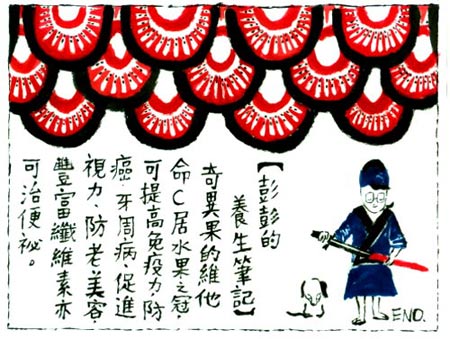 【彭彭的
養生筆記】
奇異果的維他
命C居水果之冠，
可提高免疫力、防
癌、牙周病、促進
視力、防老美容，
豐富纖維素亦
可治便祕。
ENO.